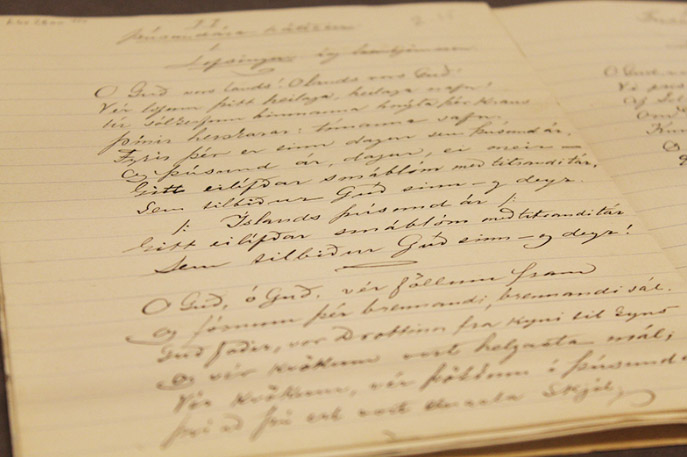 O Guð vors lands! O lands vors Guð!
Vér lofum þitt heilaga, heilaga nafn!
Úr sólkerfum himnanna hnýta þér krans
þínir herskarar: tímanna safn.
Fyrir þér er einn dagur sem þúsund ár,
Og þúsund ár, dagur, ei meir —
Eitt eilífðar smáblóm með titrandi tár,
Sem tilbiður Guð sinn – og deyr
/: Íslands þúsund ár :/
Eitt eilífðar smáblóm með titrandi tár
Sem tilbiður Guð sinn – og deyr!
O Guð, ó Guð, vér föllum fram
Og fórnum þér brennandi, brennandi sál.
Guð faðir, vor Drottinn frá kyni til kyns
Og vér kvökum vort helgasta mál;
Vér kvökum, vér þökkum í þúsund
því að þú ert vort skjól;
O Guð